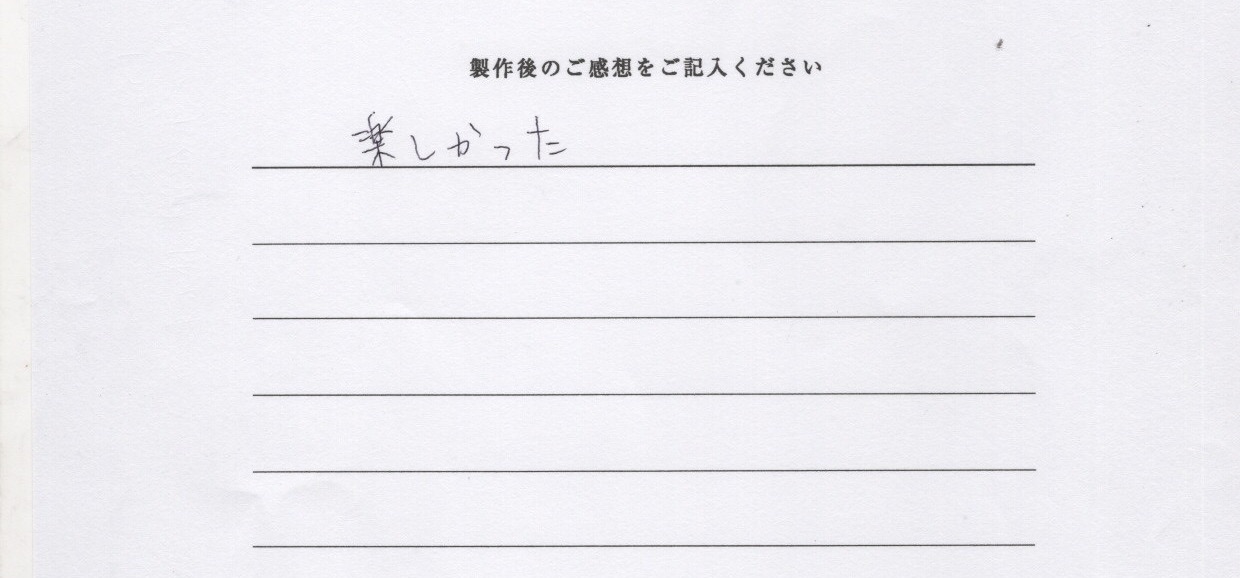 製作後のご感想をご記入ください
楽しかった